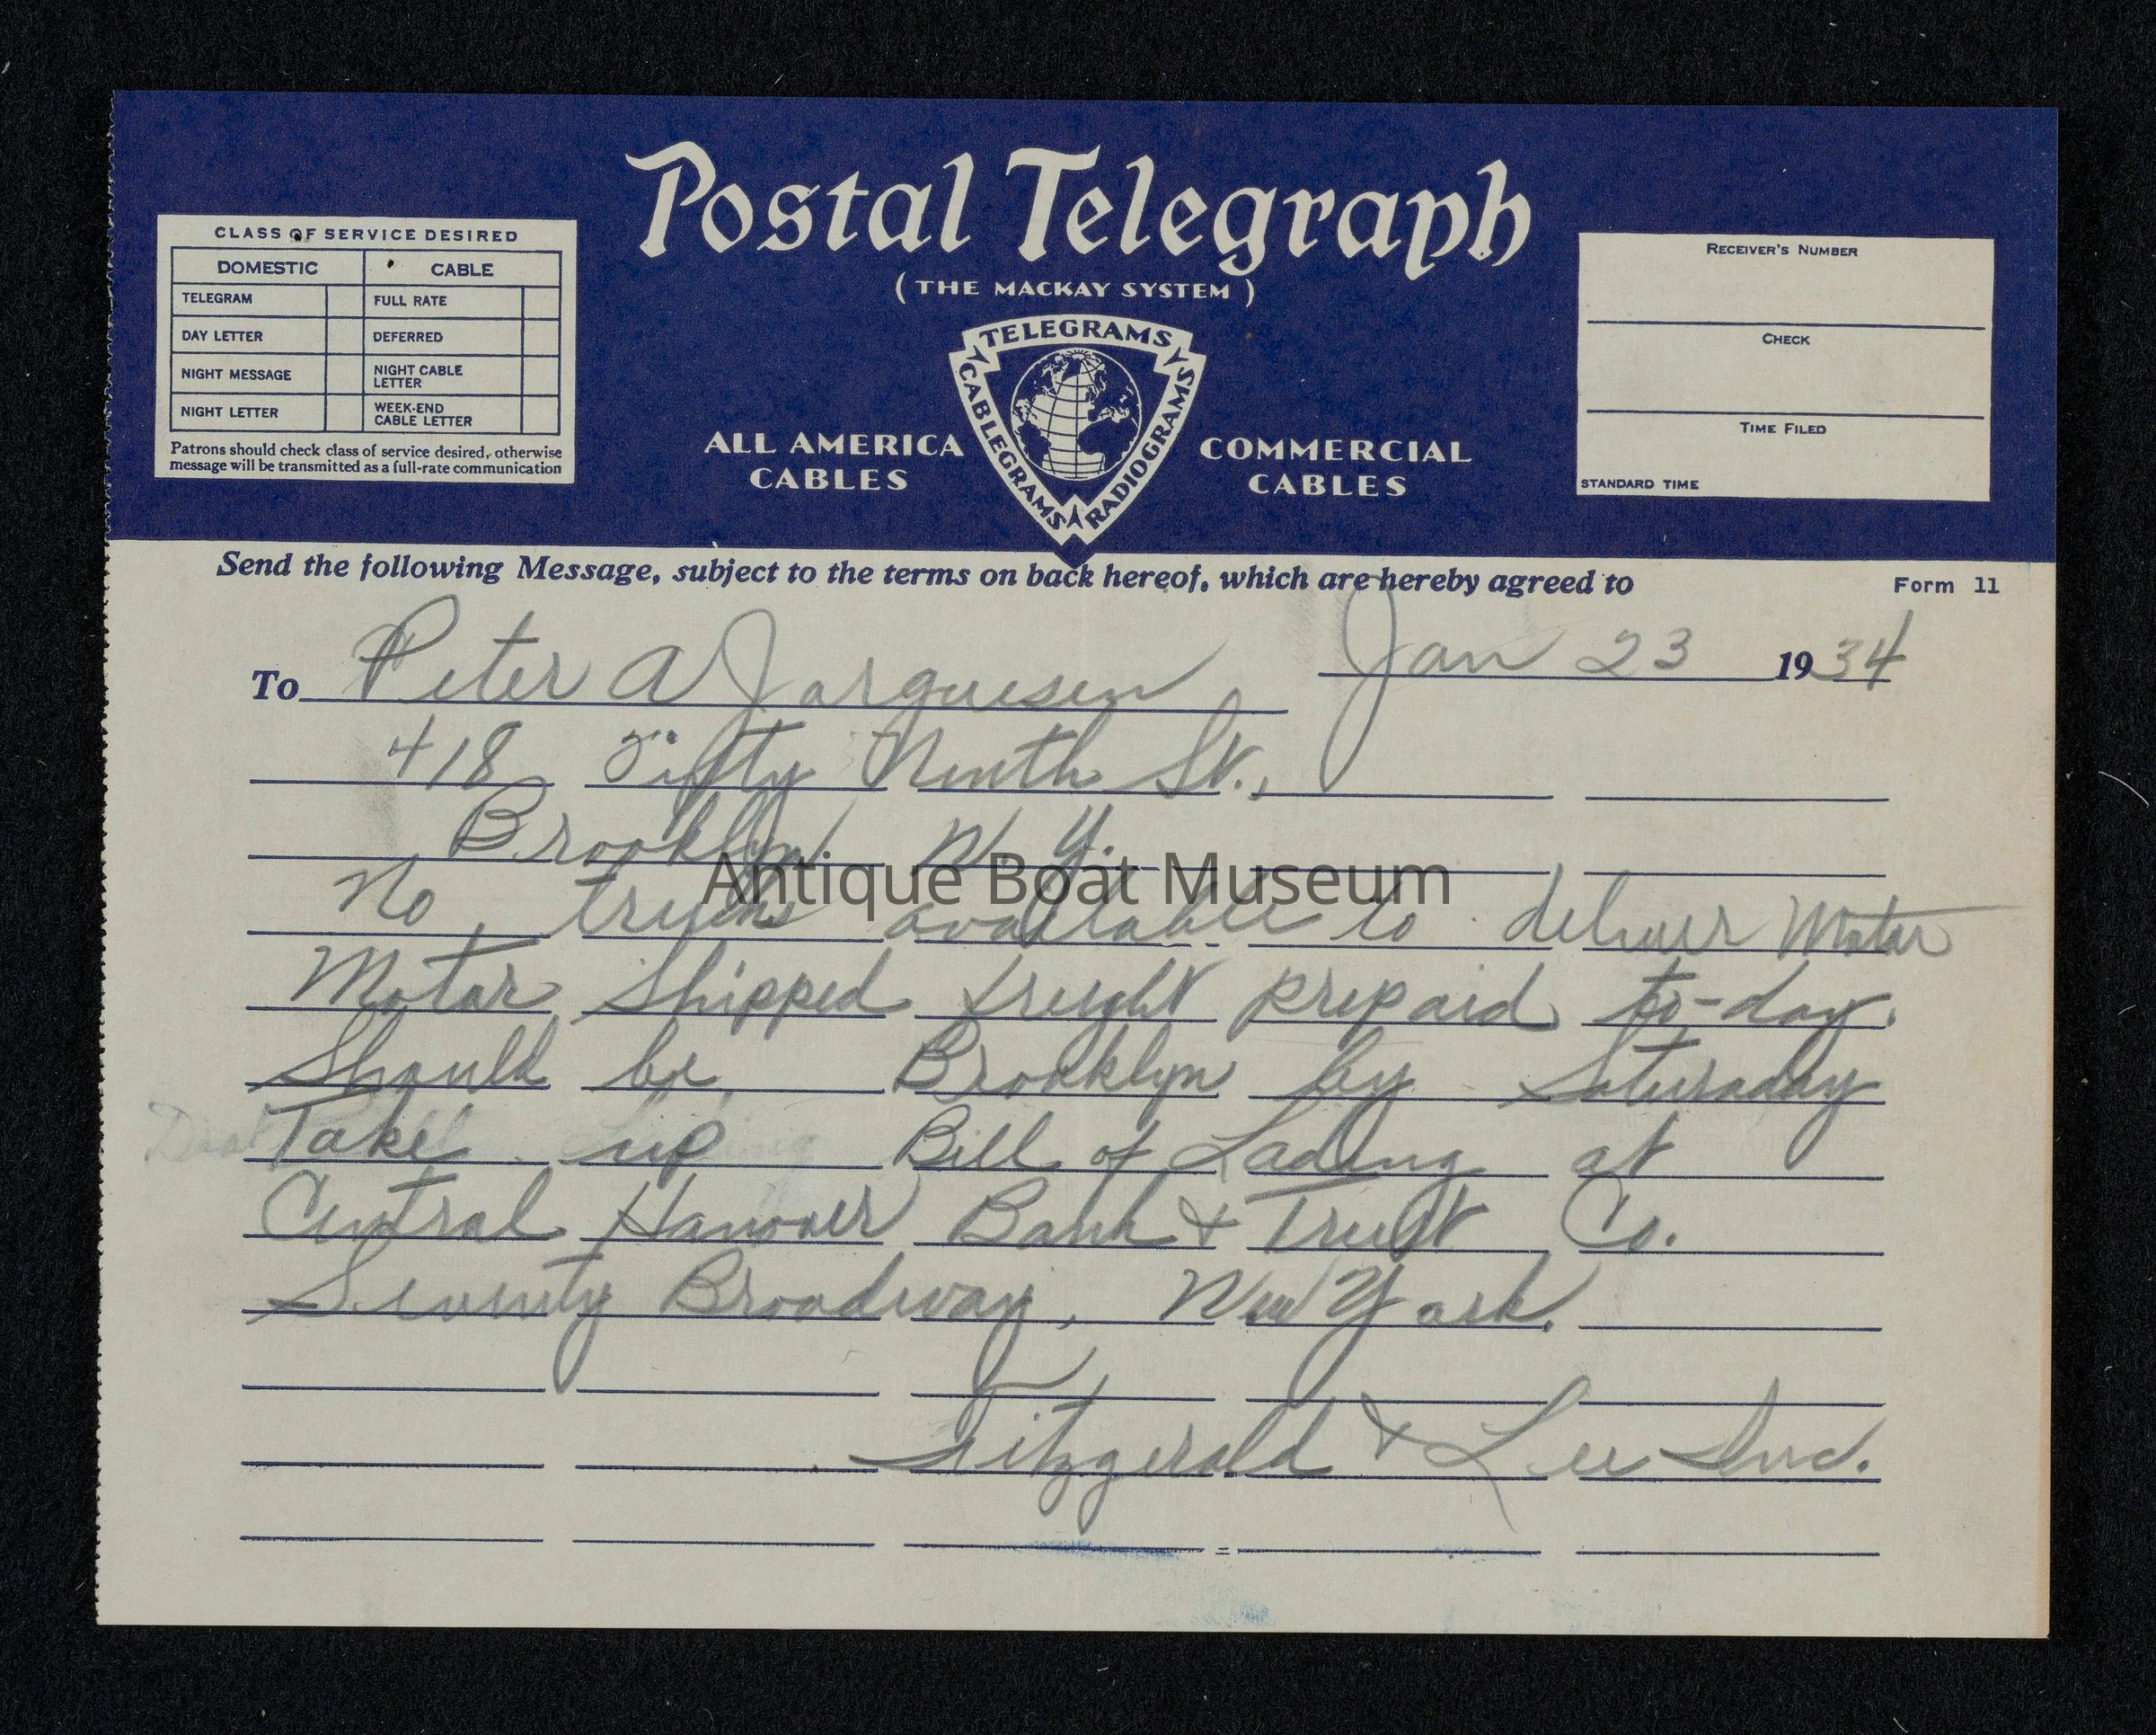 Postal Telegraph
(THE MACKAY SYSTEM)
CLASS OF SERVICE DESIRED
DOMESTIC CABLE
TELEGRAM FULL RATE
DAY LETTER DEFERRED
NIGHT MESSAGE NIGHT CABLE LETTER
NIGHT LETTER WEEK-END CABLE LETTER
Patrons should check class of service desired, otherwise
message will be transmitted as a full-rate communication
TELEGRAMS
CABLEGRAMS
RADIOGRAMS
ALL AMERICA
CABLES
COMMERCIAL
CABLES
RECEIVER'S NUMBER
CHECK
TIME FILED
STANDARD TIME
Send the following Message, subject to the terms on back hereof, which are hereby agreed to
Form 11
Jan 23 1934
To Peter A Jorguesen
418 Fifty Ninth St.,
Brooklyn N. Y.
Antique Boat Museum
No trucks available to deliver Motor
Motor Shipped freight prepaid to-day.
Should be Brooklyn by Saturaday
Take up Bill of Lading at
Central Hanover Bank & Trust Co.
Seventy Broadway, New York.
Fitzgerald & Lee Inc.